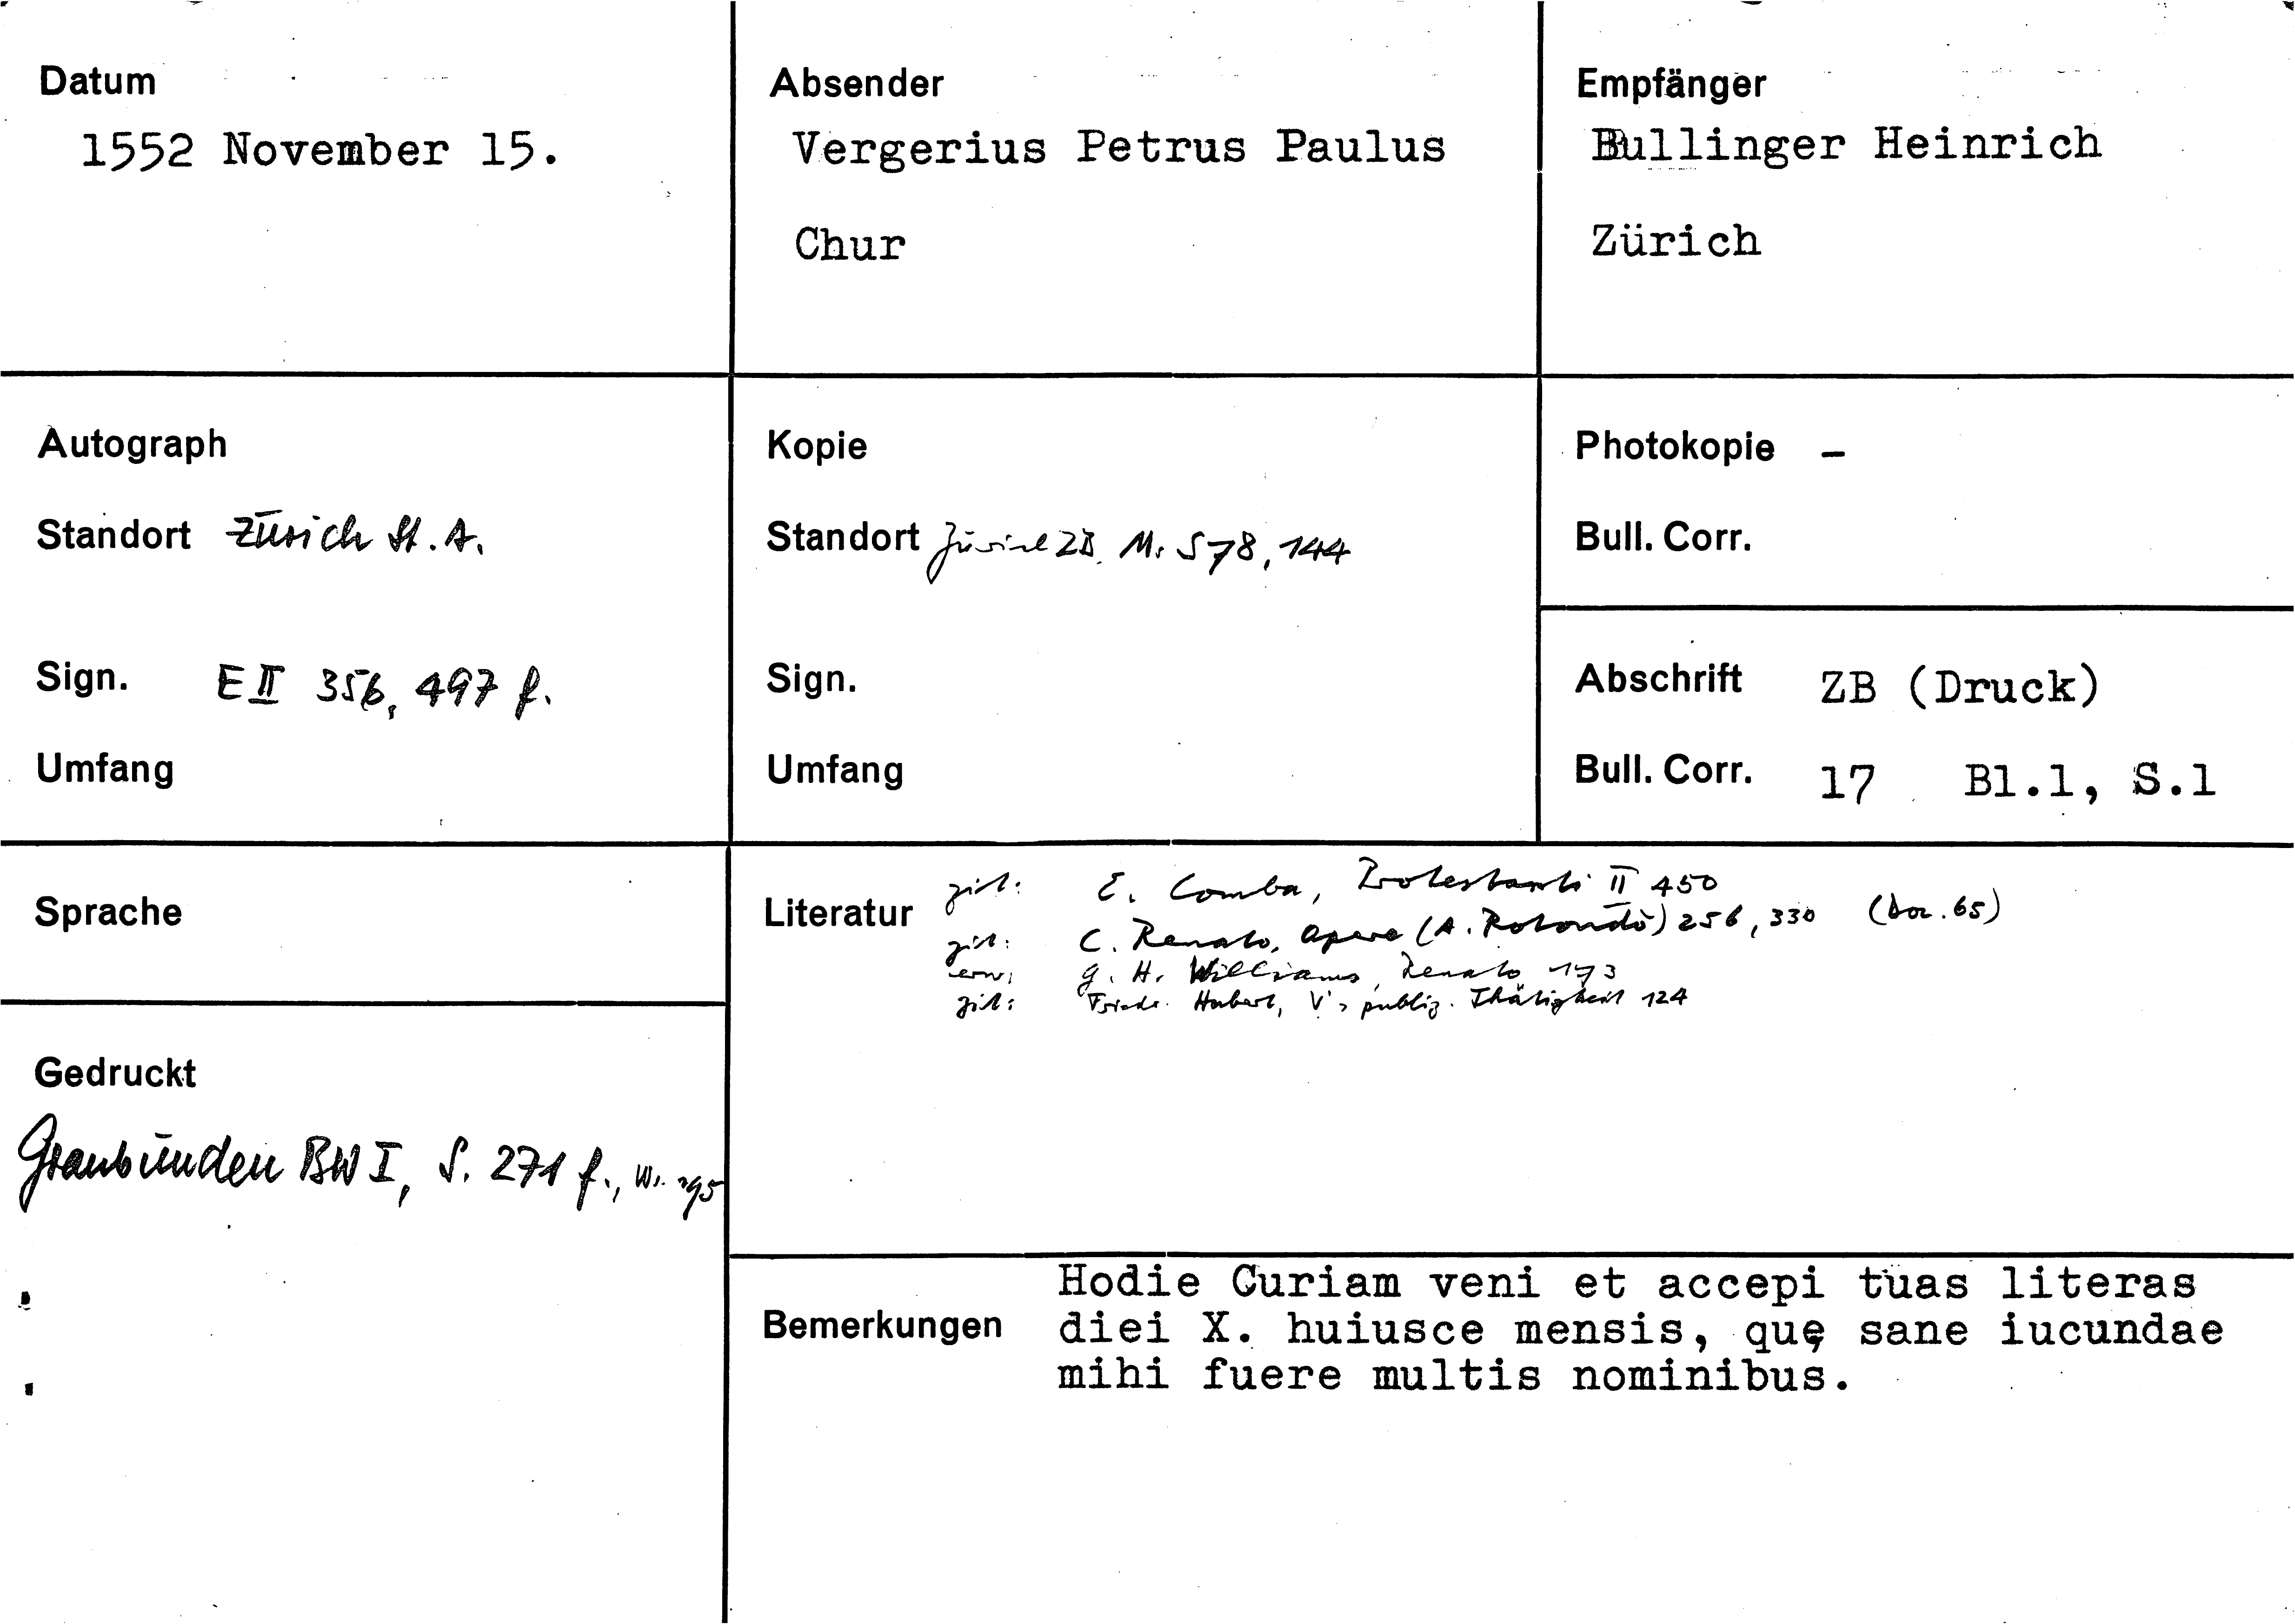 Datum
1552 November 15.
Absender
Vergerius Petrus Paulus
Chur
Empfänger
Bullinger Heinrich
Zürich
Autograph
Standort Zürich St. A.
Sign. E II 356, 497 f.
Umfang
Kopie
Standort Zürich ZB. Ms S 78, 144
Sign.
Umfang
Photokopie –
Bull. Corr.
Abschrift ZB (Druck)
Bull. Corr. 17 Bl.1, S.1
Sprache
Literatur
zit: E. Comba, Protestanti II 450
zit: C. Renato, Opere (A. Rotondò) 256, 330 (Doc. 65)
erw: G. H. Williams, Renato 173
zit: Friedr. Hubert, V's publiz. Thätigkeit 124
Gedruckt
Graubünden BW I, S. 271 f., Nr. 195
Bemerkungen
Hodie Curiam veni et accepi tuas literas
diei X. huiusce mensis, quę sane iucundae
mihi fuere multis nominibus.